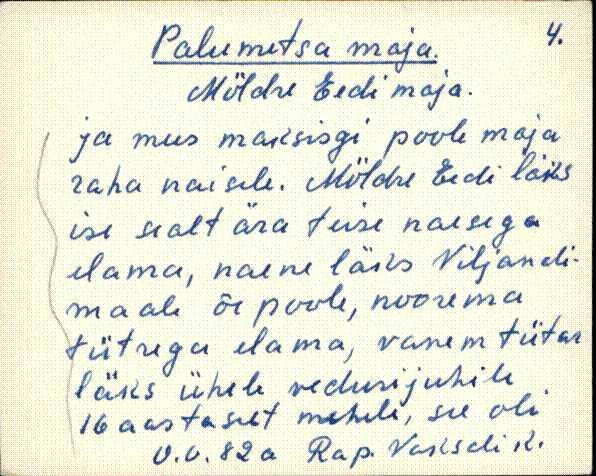 4.
Palumetsa maja.
Möldre Eedi maja.
ja mees maksisgi poole maja
raha naisele. Möldre Eedi läks
ise sealt ära teise naesega
elama, naene läks Viljandi-
maale õe poole, noorema
tütrega elama, vanem tütar
läks ühele vedurijuhile
16 aastaselt mehele, see oli
V.V. 82 a Rap.